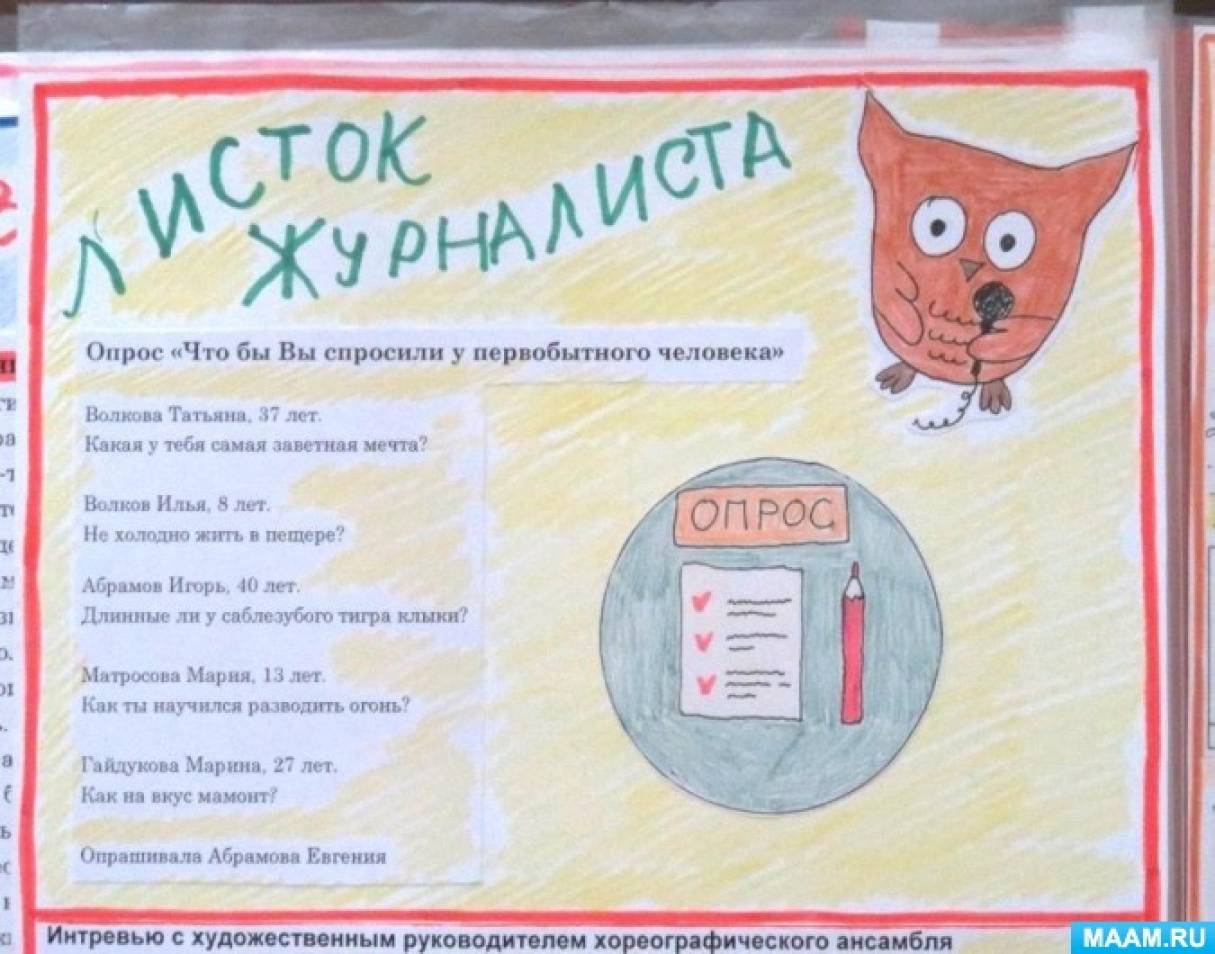 ЛИСТОК
ЖУРНАЛИСТА
Опрос «Что бы Вы спросили у первобытного человека»
Волкова Татьяна, 37 лет.
Какая у тебя самая заветная мечта?
Волков Илья, 8 лет.
Не холодно жить в пещере?
Абрамов Игорь, 40 лет.
Длинные ли у саблезубого тигра клыки?
Матросова Мария, 13 лет.
Как ты научился разводить огонь?
Гайдукова Марина, 27 лет.
Как на вкус мамонт?
Опрашивала Абрамова Евгения
ОПРОС
Интревью с художественным руководителем хореографического ансамбля
MAAM.RU